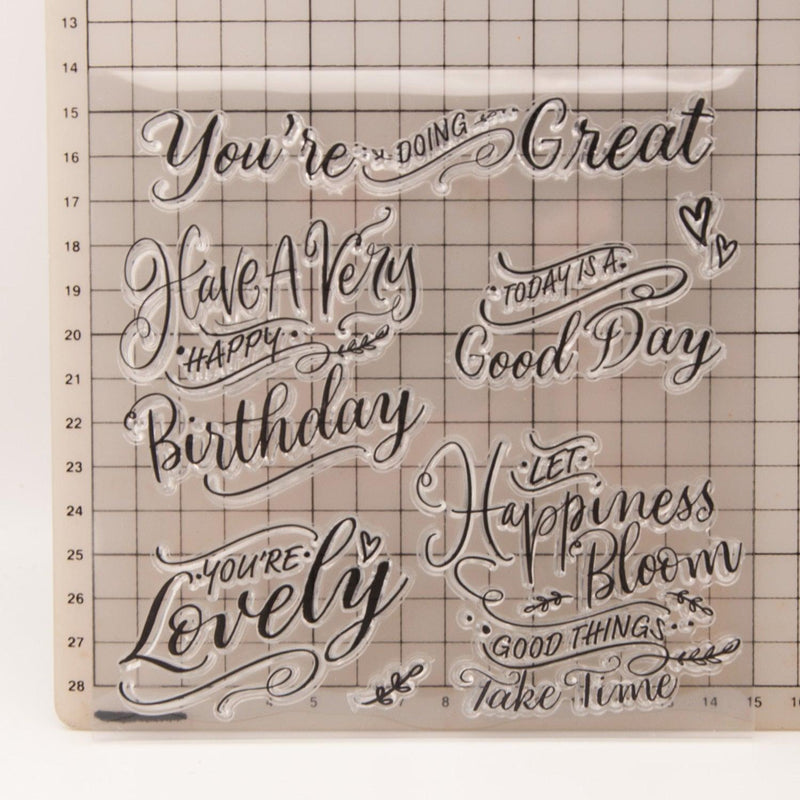 13
14
15
16
17
18
19
20
21
22
23
24
25
26
27
28
You're DOING Great
Have A Very
HAPPY
Birthday
TODAY IS A
Good Day
LET
Happiness
Bloom
YOU'RE
Lovely
GOOD THINGS
Take Time
4 5 7 8 14 15